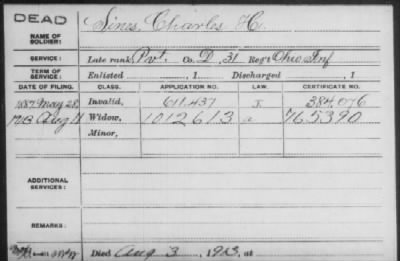 DEAD
NAME OF SOLDIER: Sines, Charles H.
SERVICE: Late rank, Pvt. Co. D, 31 Reg't Ohio Inf
TERM OF SERVICE: Enlisted , 1 Discharged , 1
DATE OF FILING. CLASS. APPLICATION NO. LAW. CERTIFICATE NO.
1887 May 28, Invalid, 611.437 J. 384,076
Aug 11 Widow, 1012613 a 765390
Minor,
ADDITIONAL SERVICES:
REMARKS:
Died Aug 3, 1913, at